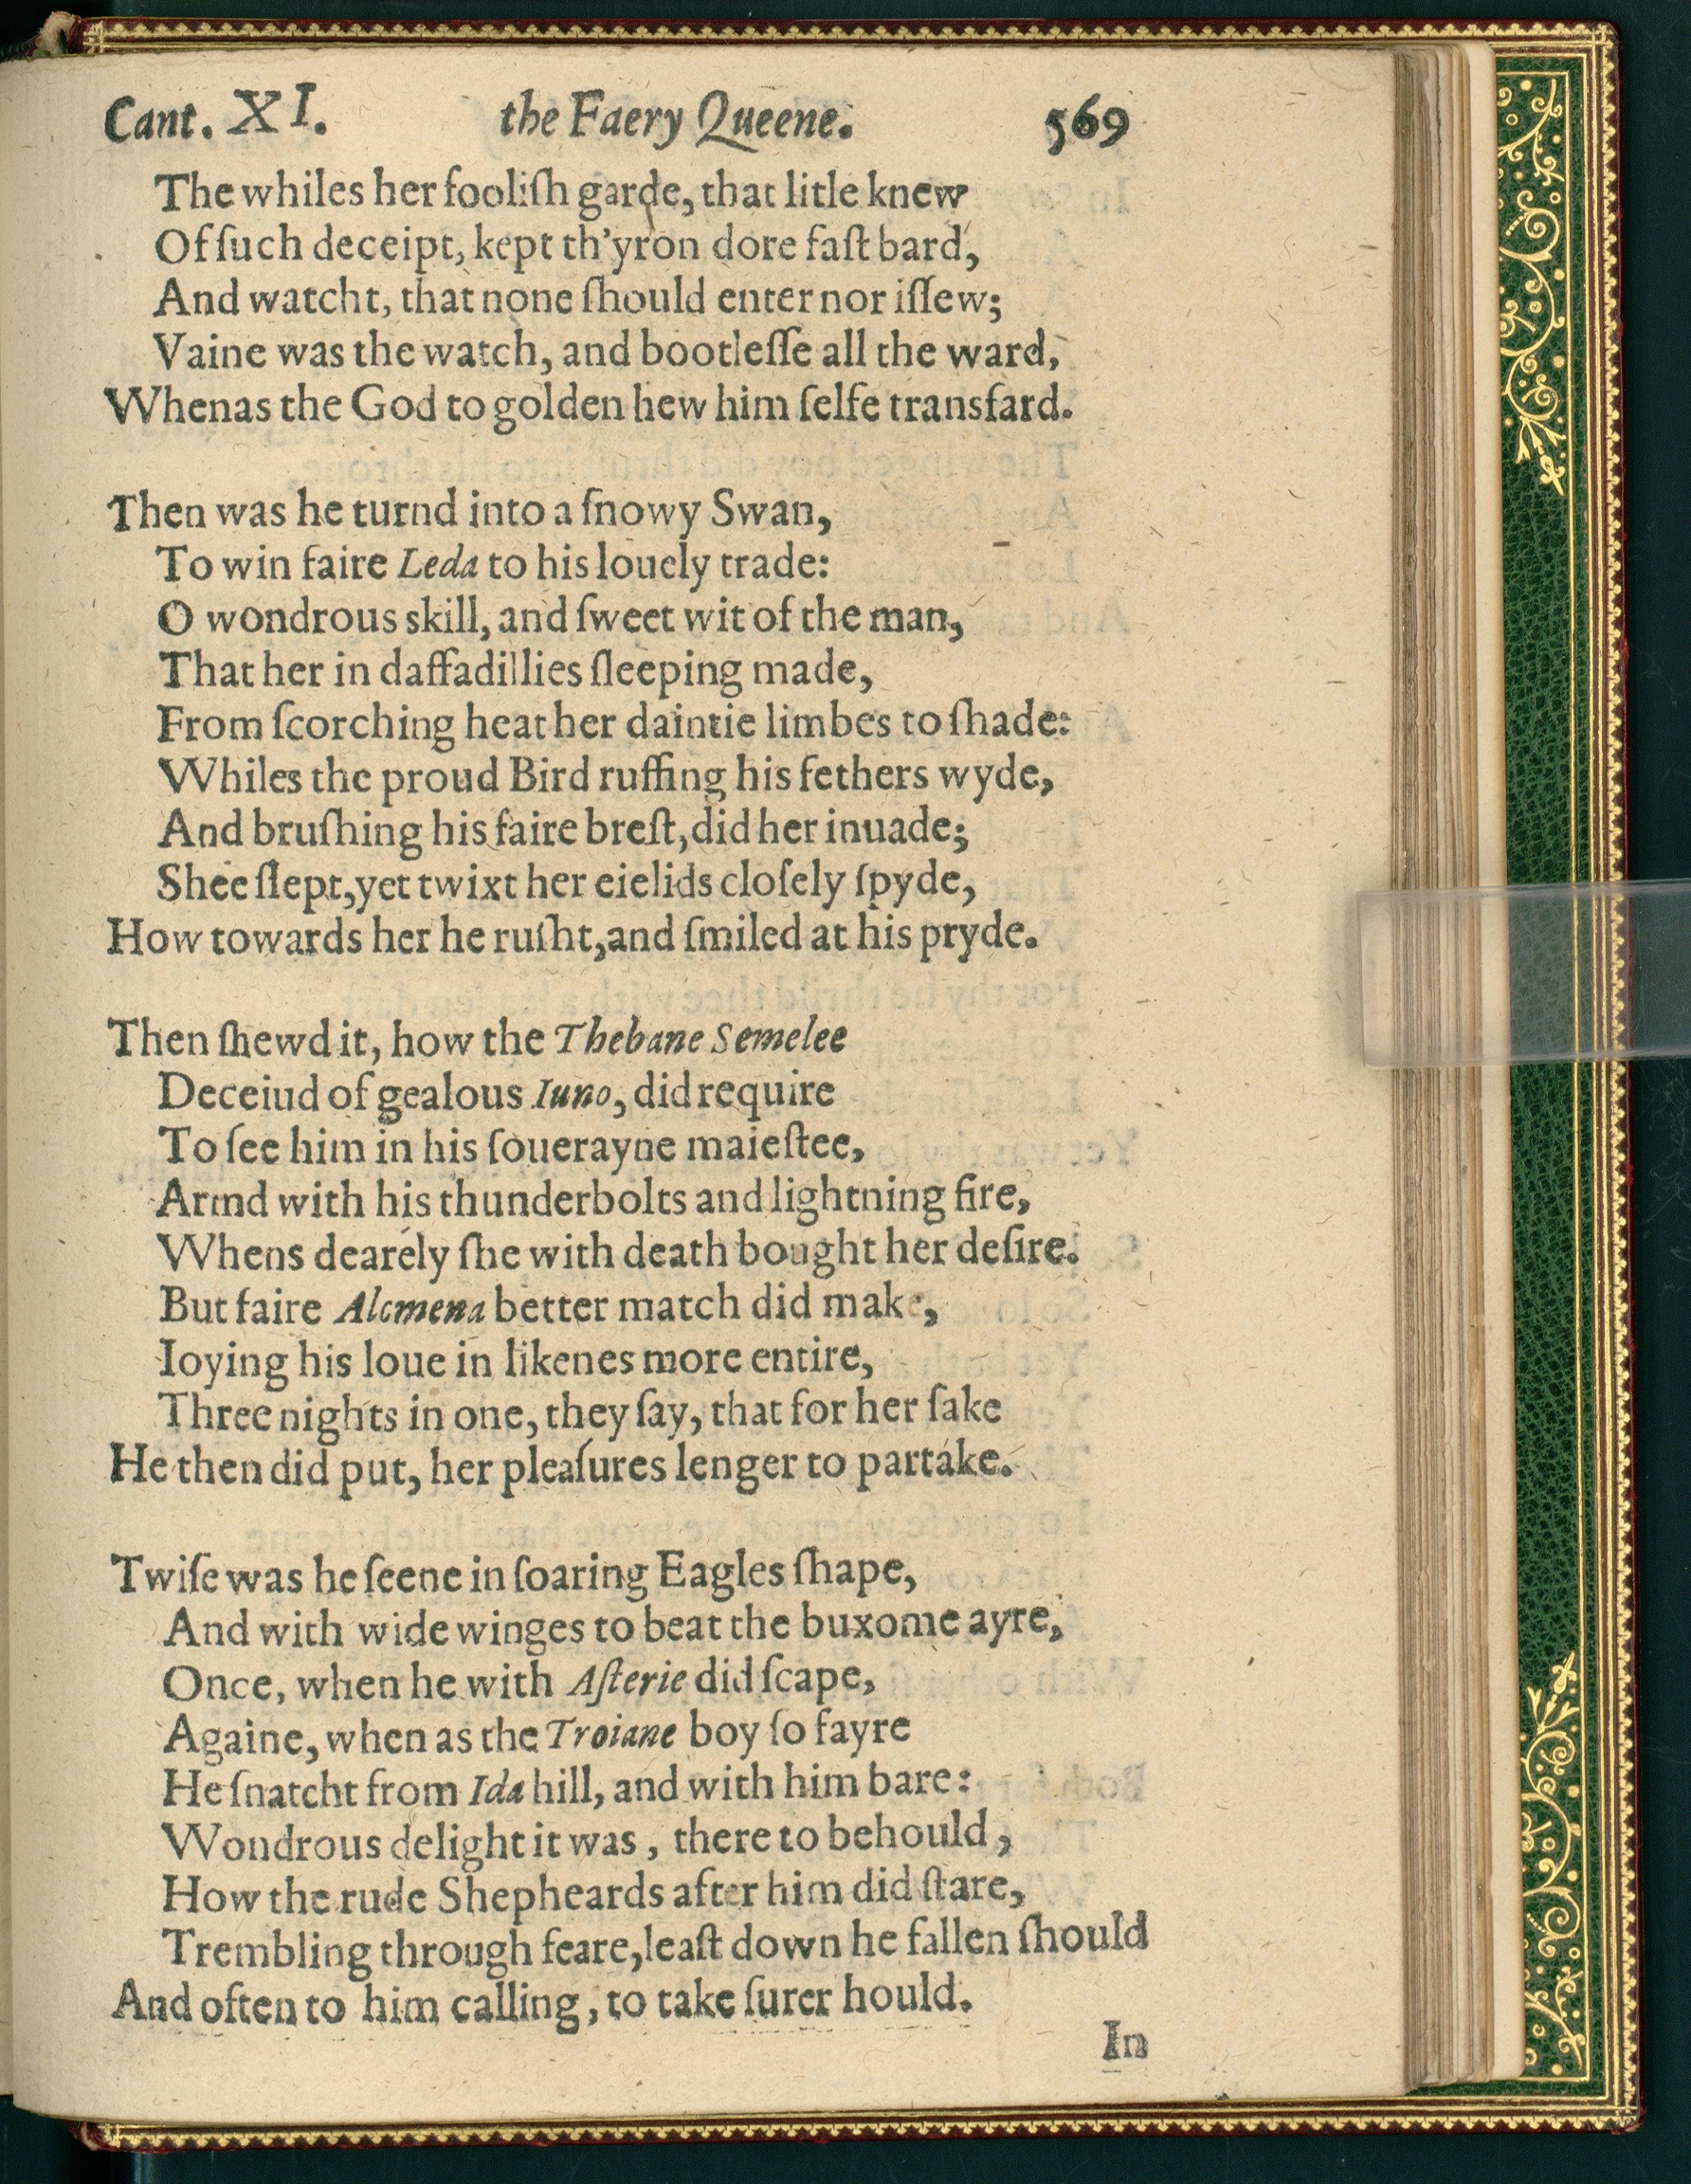 Cant. XI. the Faery Queene. 569
The whiles her fooliſh garde, that litle knew
Of ſuch deceipt, kept th'yron dore faſt bard,
And watcht, that none ſhould enter nor iſſew;
Vaine was the watch, and bootleſſe all the ward,
Whenas the God to golden hew him ſelfe transfard.
Then was he turnd into a ſnowy Swan,
To win faire Leda to his louely trade:
O wondrous skill, and ſweet wit of the man,
That her in daffadillies ſleeping made,
From ſcorching heat her daintie limbes to ſhade:
Whiles the proud Bird ruffing his fethers wyde,
And bruſhing his faire breſt, did her inuade;
Shee ſlept, yet twixt her eielids cloſely ſpyde,
How towards her he ruſht, and ſmiled at his pryde.
Then ſhewd it, how the Thebane Semelee
Deceiud of gealous Iuno, did require
To ſee him in his ſouerayne maieſtee,
Armd with his thunderbolts and lightning fire,
Whens dearely ſhe with death bought her deſire.
But faire Alcmena better match did make,
Ioying his loue in likenes more entire,
Three nights in one, they ſay, that for her ſake
He then did put, her pleaſures lenger to partake.
Twiſe was he ſeene in ſoaring Eagles ſhape,
And with wide winges to beat the buxome ayre,
Once, when he with Aſterie did ſcape,
Againe, when as the Troiane boy ſo fayre
He ſnatcht from Ida hill, and with him bare:
Wondrous delight it was, there to behould,
How the rude Shepheards after him did ſtare,
Trembling through feare, leaſt down he fallen ſhould
And often to him calling, to take ſurer hould.
In